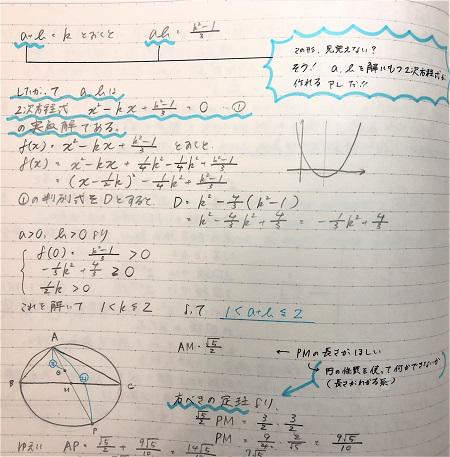 a+b=k とおくと ab = (k²-1)/3
この形、見覚えない?
そう! a, bを解にもつ2次方程式を
作れるアレだ!!
したがって a, bは
2次方程式 x²-kx+(k²-1)/3 = 0 …①
の実数解である。
f(x) = x²-kx+(k²-1)/3 とおくと
f(x) = x²-kx+1/4k²-1/4k²+(k²-1)/3
= (x-1/2k)²-1/4k²+(k²-1)/3
①の判別式をDとすると D = k²-4/3(k²-1)
= k²-4/3k²+4/3 = -1/3k²+4/3
a>0, b>0より
f(0) = (k²-1)/3 > 0
-1/3k²+4/3 ≧ 0
1/2k > 0
これを解いて 1<k≦2 よって 1<a+b≦2
A
B
C
M
P
θ
AM = √5/2
← PMの長さがほしい
円の性質を使って何かできないか
(長さがわかる系)
方べきの定理より、
√5/2 PM = 3/2 · 3/2
PM = 9/4 · 2/√5 = 9√5/10
ゆえに AP = √5/2 + 9√5/10 = 14√5/10 7√5